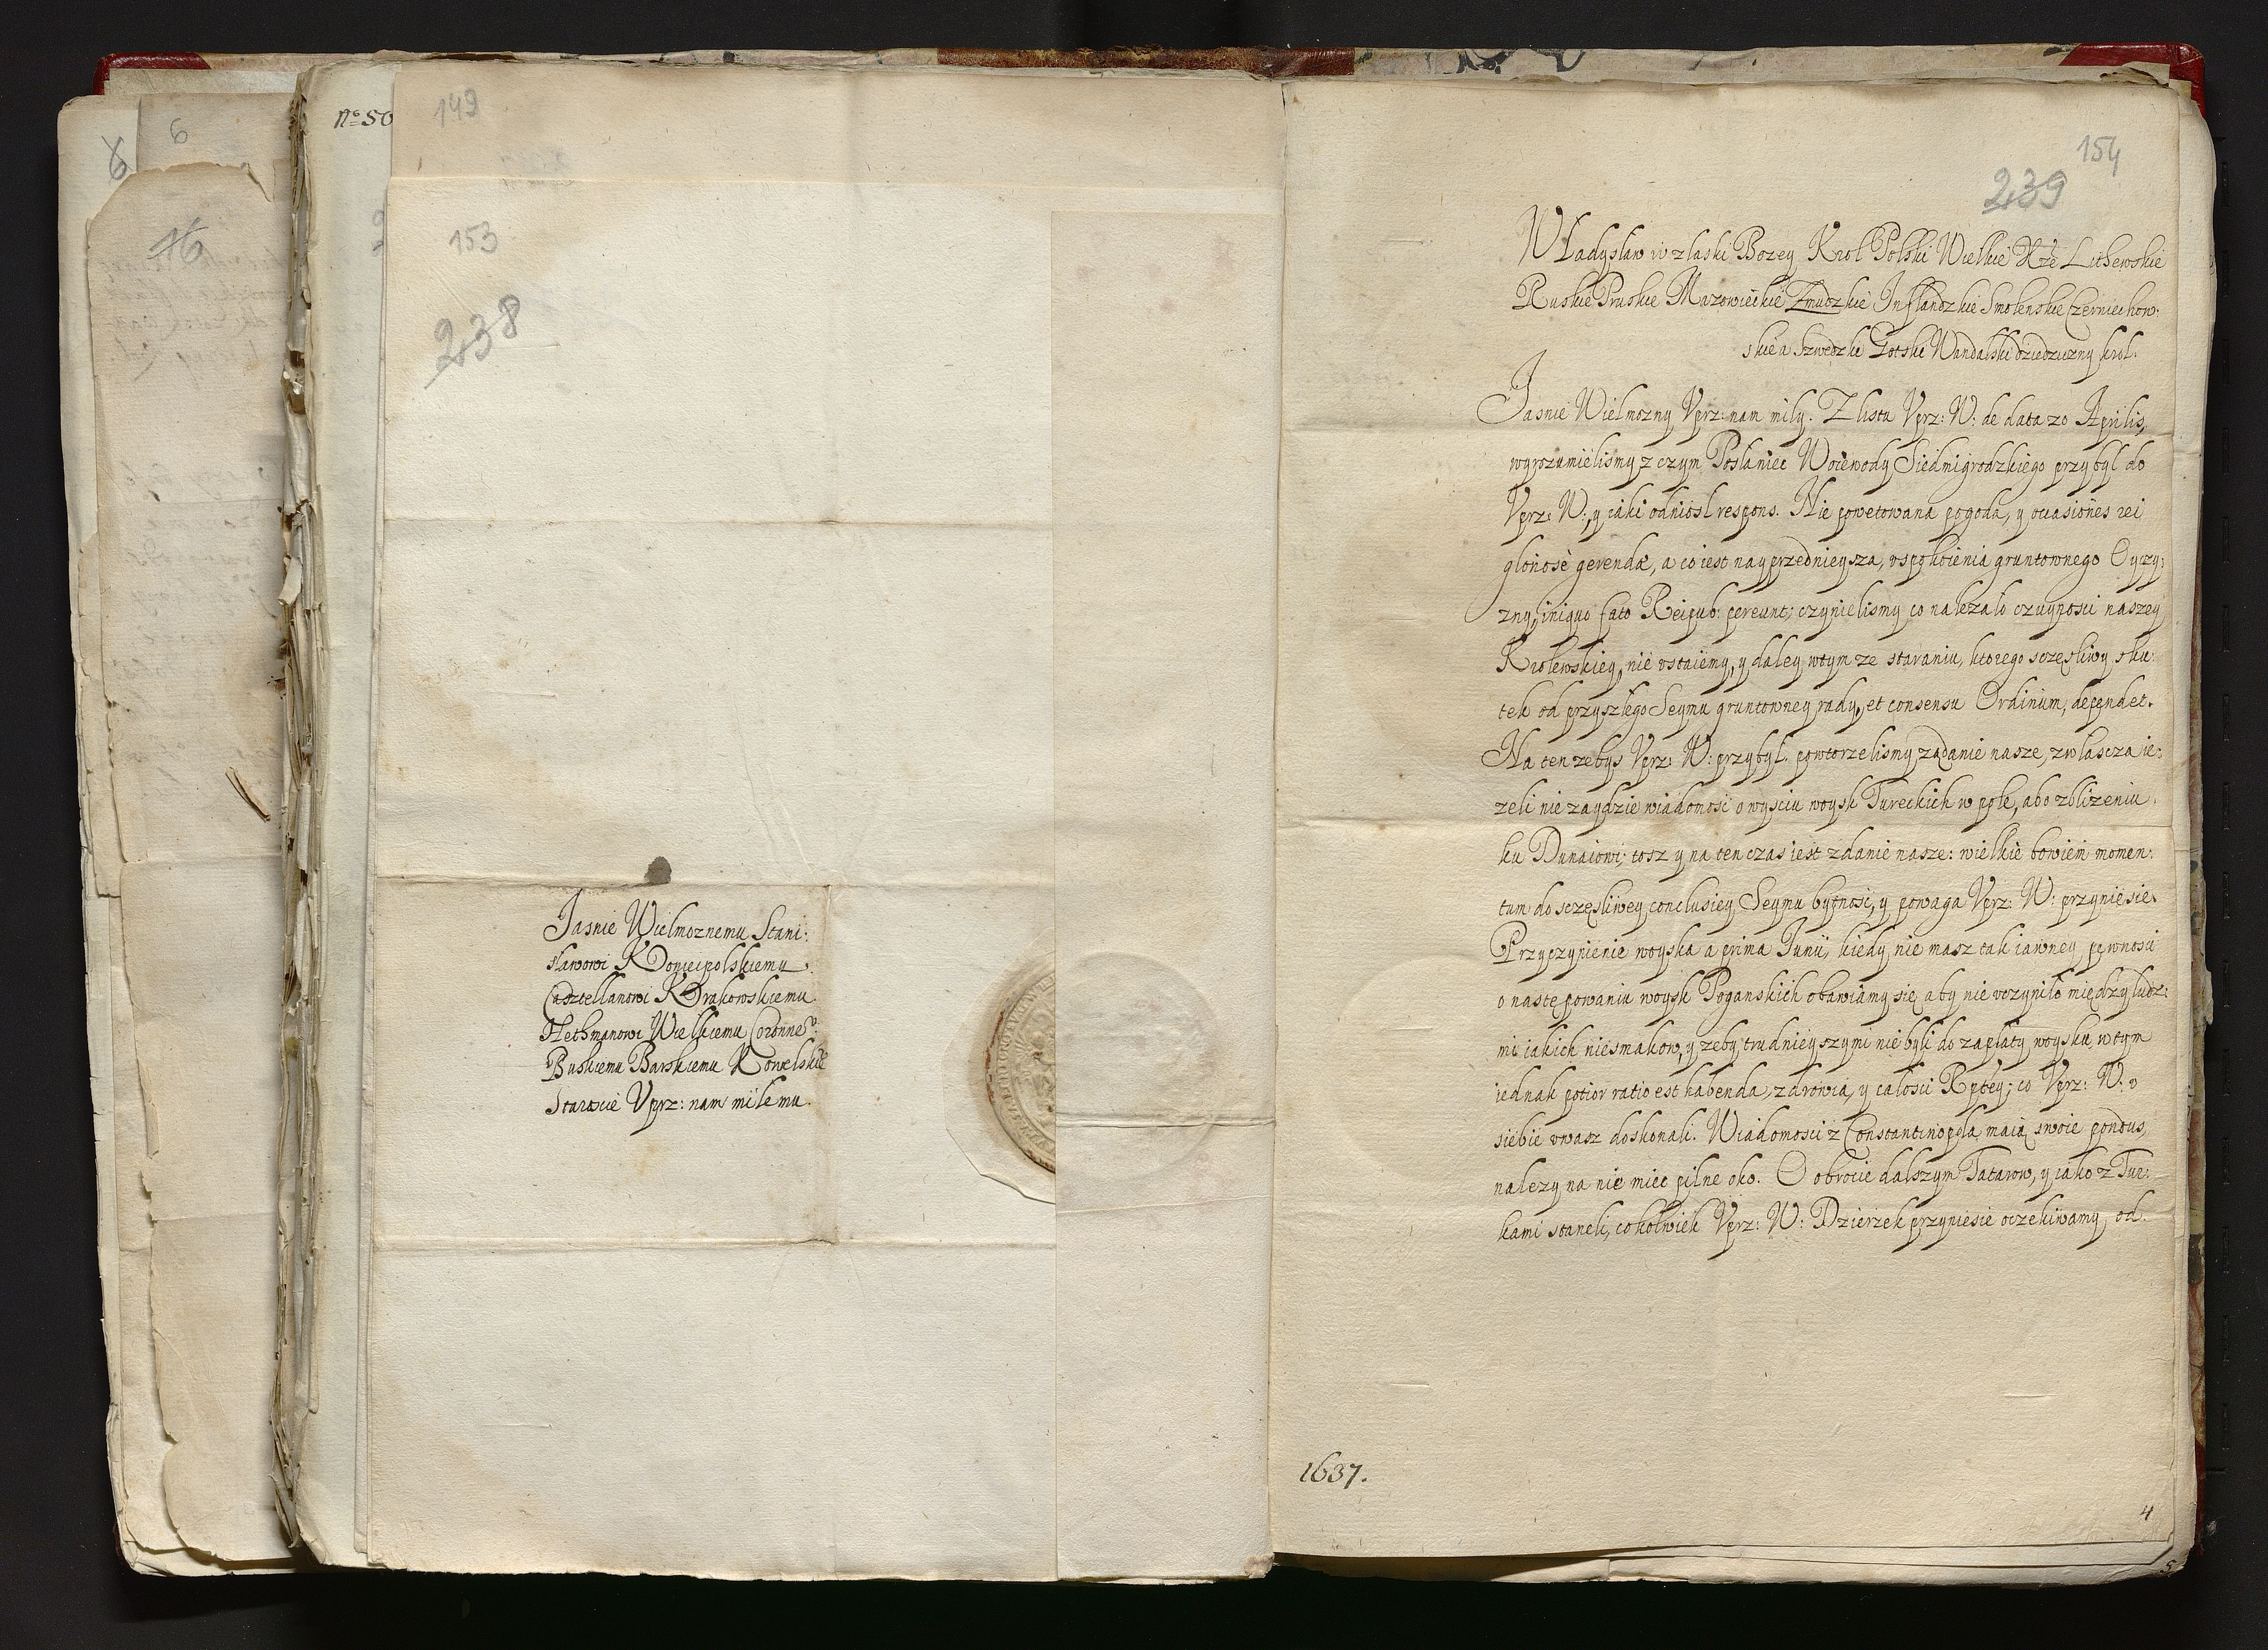 6
6
16
No 50
149
153
238
Jasnie Wielmoznemu Stani:
sławowi KOniecpolskiemu
Casztellanowi KRakowskiemu
Hethmanowi Wielkiemu Coronneº:
Buskiemu Barskiemu Kowelskie
Staroscie Vprz: nam miłemu.
154
239
WŁadysław iv z łaski Bozey Krol Polski Wielkie Xże Lithewskie
Ruskie Pruskie Mazowieckie Zmudzkie Inflandzkie Smolenskie Czerniechow:
skie a Szwedzki Gotski Wandalski dziedziczny krol.
Jasnie Wielmozny Vprz: nam miły. Z listu Vprz: W: de data 20 Aprilis,
wyrozumielismy z czym Posłaniec Woiewody Siedmigrodzkiego przybył do
Vprz: W:, y iaki odniosł respons. Nie powetowana pogoda, y occasiones rei
gloriose gerendæ, a co iest nayprzednieysza, vspokoienia gruntownego Oyczy:
zny, iniquo fato Reipub: pereunt; czynielismy co nalezało czuynosci naszey
Krolewskiey, nie vstaiemy, y daley w tym ze staraniu, ktorego sczęsliwy sku:
tek od przyszłego Seymu gruntowney rady, et consensu Ordinum, dependet.
Na ten zebys Vprz: W: przybył. powtorzelismy ządanie nasze, zwłascza ie:
zeli nie zaydzie wiadomosc o wysciu woysk Tureckich w pole, abo zblizeniu
ku Dunaiowi; tosz y na ten czas iest zdanie nasze: wielkie bowiem momen:
tum do sczęsliwey conclusiey Seymu bytnosc, y powaga Vprz: W: przyniesie.
Przyczynienie woyska a prima Junii, kiedy nie masz tak iawney pewnosci
o nastę powaniu woysk Poganskich obawiamy się, aby nie vczyniło między ludz:
mi iakich niesmakow, y zeby trudnieyszymi nie byli do zapłaty woysku, w tym
iednak potior ratio est habenda, zdrowia, y całosci Rptey; co Vprz: W: v
siebie vwasz doskonali. Wiadomosci z Constantinopola maią swoie pondus,
nalezy na nie miec pilne oko. O obrocie dalszym Tatarow, y iako z Tur:
kami staneli, cokolwiek Vprz: W: Dzierzek przyniesie oczekiwamy, od.
1637.
4
5